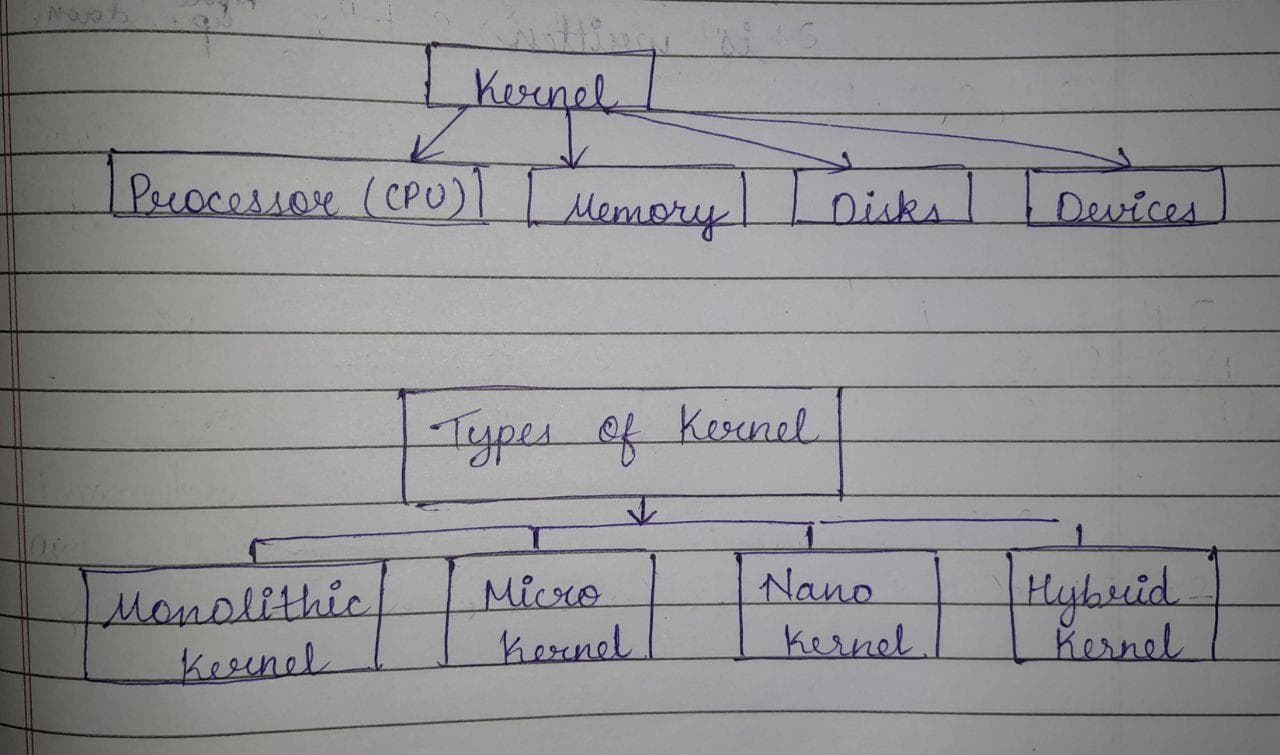 Kernel
Processor (CPU) Memory Disks Devices
Types of Kernel
Monolithic Kernel
Micro Kernel
Nano Kernel
Hybrid Kernel